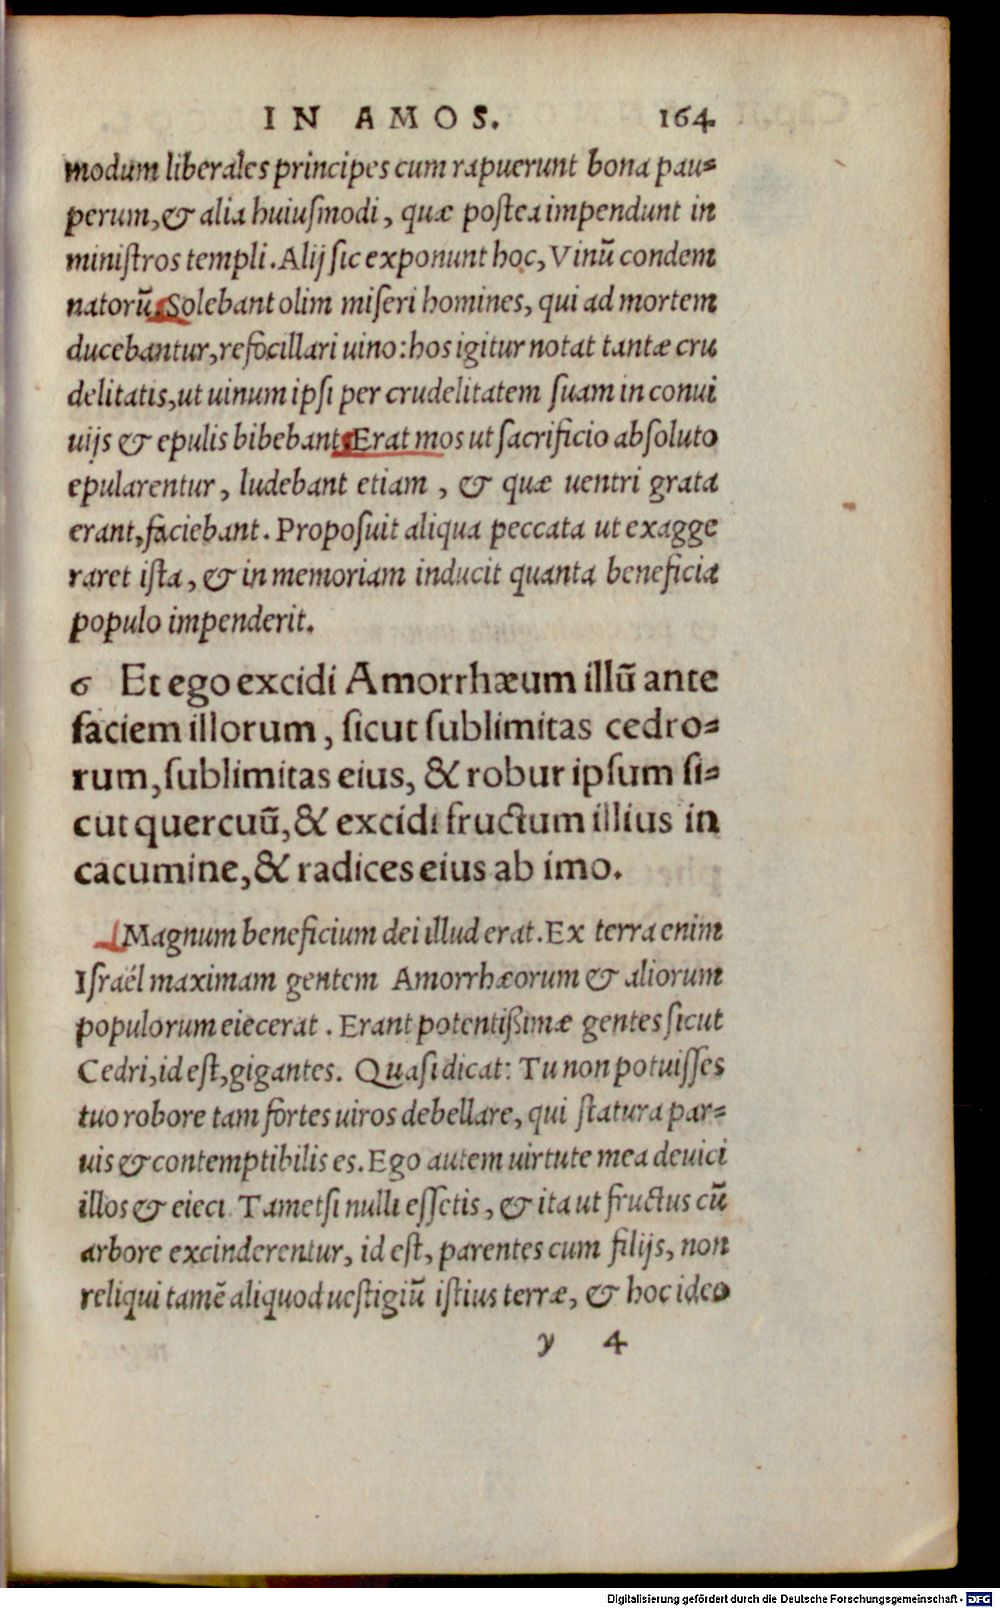 IN AMOS. 164
modum liberales principes cum rapuerunt bona pau=
perum, & alia huiuſmodi, quæ poſtea impendunt in
miniſtros templi. Alij ſic exponunt hoc, Vinũ condem
natorũ. Solebant olim miſeri homines, qui ad mortem
ducebantur, refocillari uino: hos igitur notat tantæ cru
delitatis, ut uinum ipſi per crudelitatem ſuam in conui
uijs & epulis bibebant. Erat mos ut ſacrificio abſoluto
epularentur, ludebant etiam, & quæ uentri grata
erant, faciebant. Propoſuit aliqua peccata ut exagge
raret iſta, & in memoriam inducit quanta beneficia
populo impenderit.
6 Et ego excidi Amorrhæum illũ ante
faciem illorum, ſicut ſublimitas cedro=
rum, ſublimitas eius, & robur ipſum ſi=
cut quercuũ, & excidi fructum illius in
cacumine, & radices eius ab imo.
Magnum beneficium dei illud erat. Ex terra enim
Iſraël maximam gentem Amorrhæorum & aliorum
populorum eiecerat. Erant potentißimæ gentes ſicut
Cedri, id eſt, gigantes. Quaſi dicat: Tu non potuiſſes
tuo robore tam fortes uiros debellare, qui ſtatura par=
uis & contemptibilis es. Ego autem uirtute mea deuici
illos & eieci. Tametſi nulli eſſetis, & ita ut fructus cũ
arbore excinderentur, id eſt, parentes cum filijs, non
reliqui tamẽ aliquod ueſtigiũ iſtius terræ, & hoc ideo
y 4
Digitalisierung gefördert durch die Deutsche Forschungsgemeinschaft - DFG